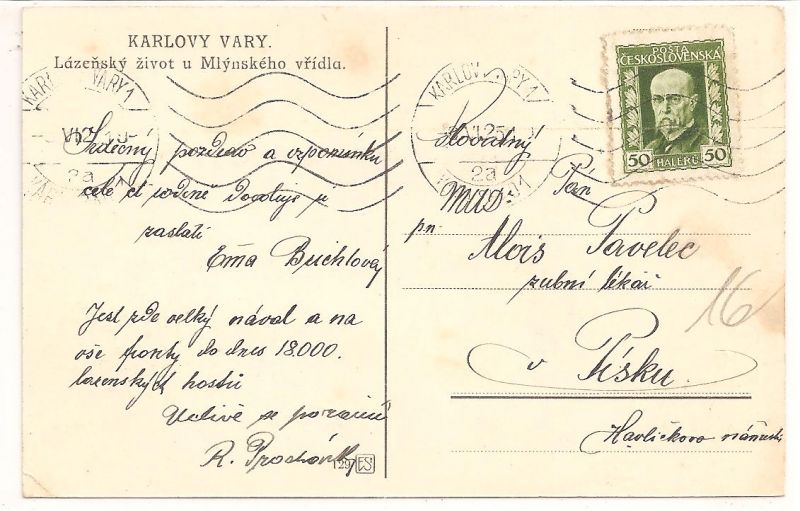 KARLOVY VARY.
Lázeňský život u Mlýnského vřídla.
Srdečný pozdrav a vzpomínku
celé ct rodině dovoluje si
zaslati
Ema Buchlová
Jest zde velký nával a na
vše fronty do dnes 18.000.
lazenských hostů
Uctivě se poroučí
R.
129
POŠTA
ČESKOSLOVENSKÁ
50 HALÉŘŮ 50
KARLOVY VARY 1
VI 25
2a
KARLOVY VARY 1
VI 25
2a
Slovutný
Pán
MUD.
pn. Alois Pavelec
zubní lékař
v Písku.
Havlíčkovo náměstí
16